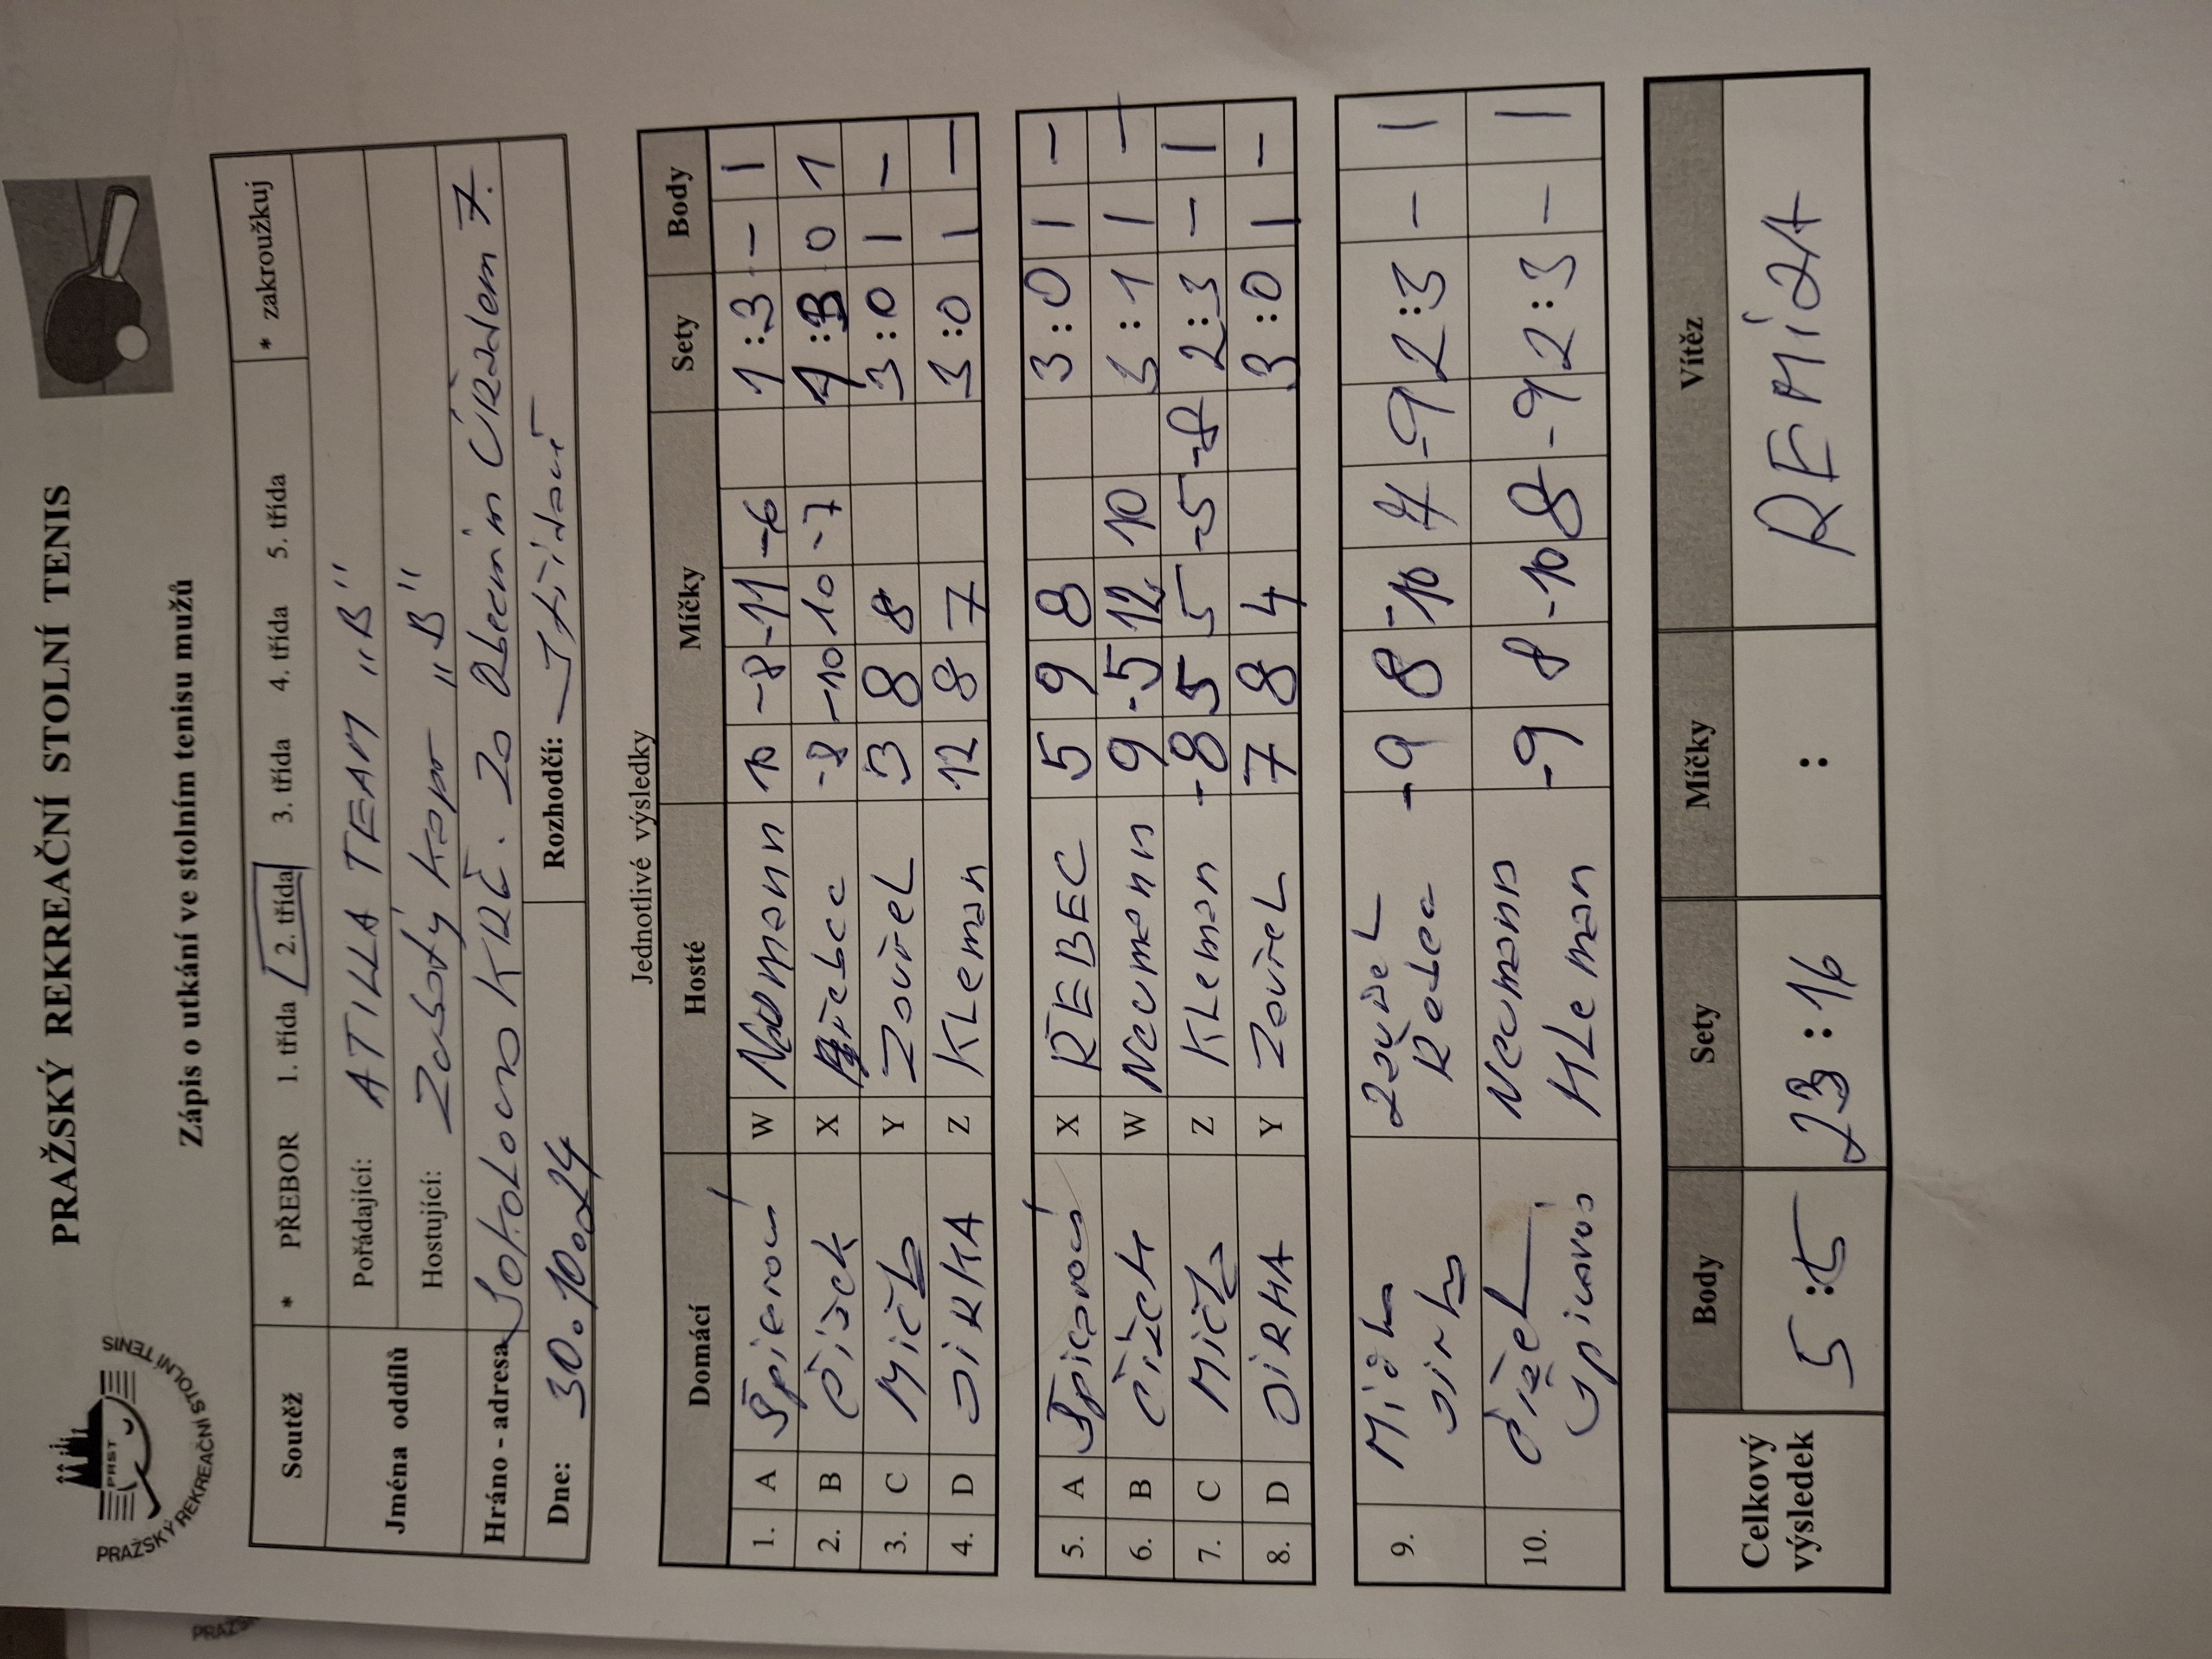 PRAŽSKÝ REKREAČNÍ STOLNÍ TENIS
PRST
PRAŽSKÝ REKREAČNÍ STOLNÍ TENIS
Zápis o utkání ve stolním tenisu mužů
Soutěž * PŘEBOR 1. třída 2. třída 3. třída 4. třída 5. třída * zakroužkuj
Jména oddílů
Pořádající: ATILLA TEAM "B"
Hostující: Zlatý Kapr "B"
Hráno - adresa Sokolovna KRČ. Za Obecním ÚŘADem 7.
Dne: 30.10.24 Rozhodčí: Střídaví
Jednotlivé výsledky
Domácí Hosté Míčky Sety Body
1. A W Neumann 10 -8 -11 -6 1:3 - 1
2. B Čížek X Řebec -8 -10 10 -7 1:3 0 1
3. C Mičl Y Zouřel 3 8 8 3:0 1 -
4. D JIRKA Z KLeman 12 8 7 3:0 1 -
5. A X ŘEBEC 5 9 8 3:0 1 -
6. B Čížek W Neumann 9 -5 12 10 3:1 1 -
7. C Mičl Z KLeman -8 5 5 -5 -8 2:3 - 1
8. D JIRKA Y Zouřel 7 8 4 3:0 1 -
9. Zouřel -9 8 -10 7 -9 2:3 - 1
Řebec
10. Neumann -9 8 -10 8 -9 2:3 - 1
KLeman
Celkový výsledek
Body Sety Míčky Vítěz
5:5 23:16 : REMíZA